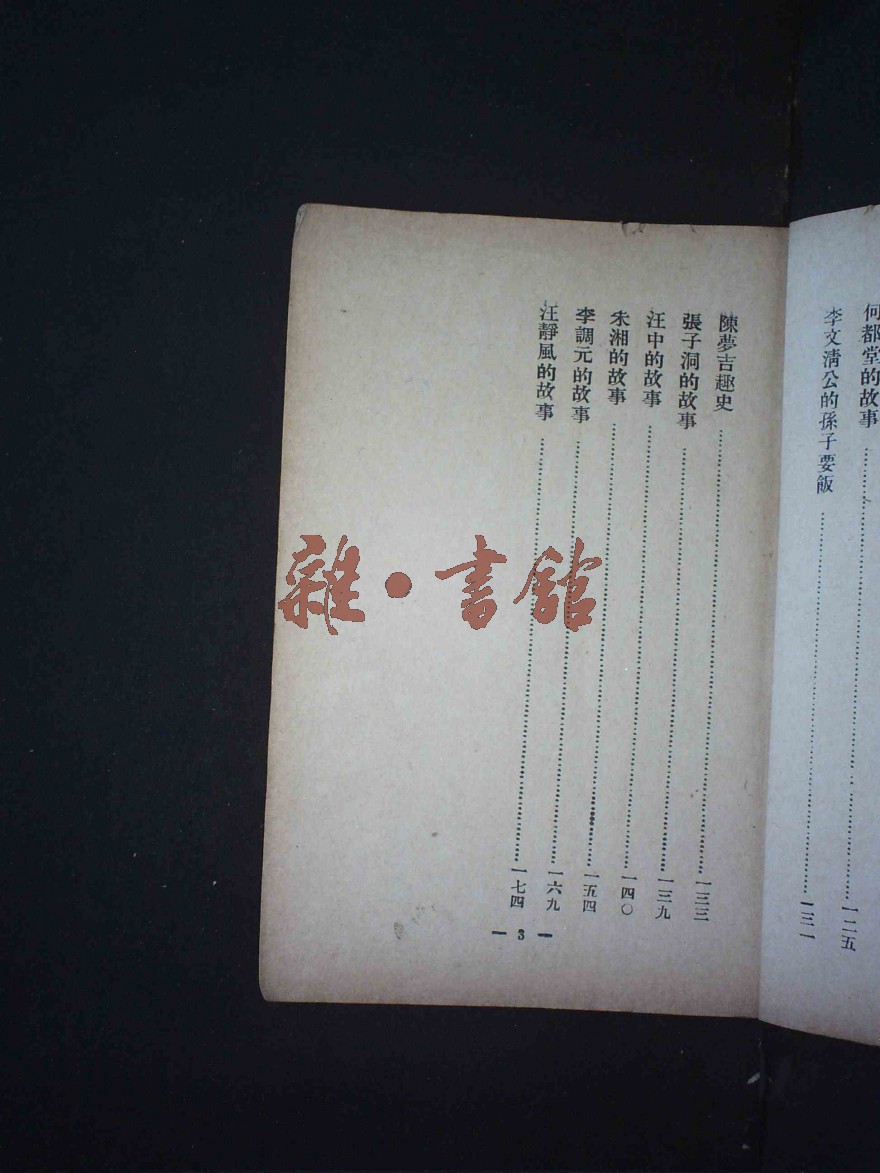 何都堂的故事……一二五
李文清公的孫子要飯……一三一
陳夢吉趣史……一三三
張子洞的故事……一三九
汪中的故事……一四〇
朱湘的故事……一五四
李調元的故事……一六九
汪靜風的故事……一七四
— 3 —
雜·書館